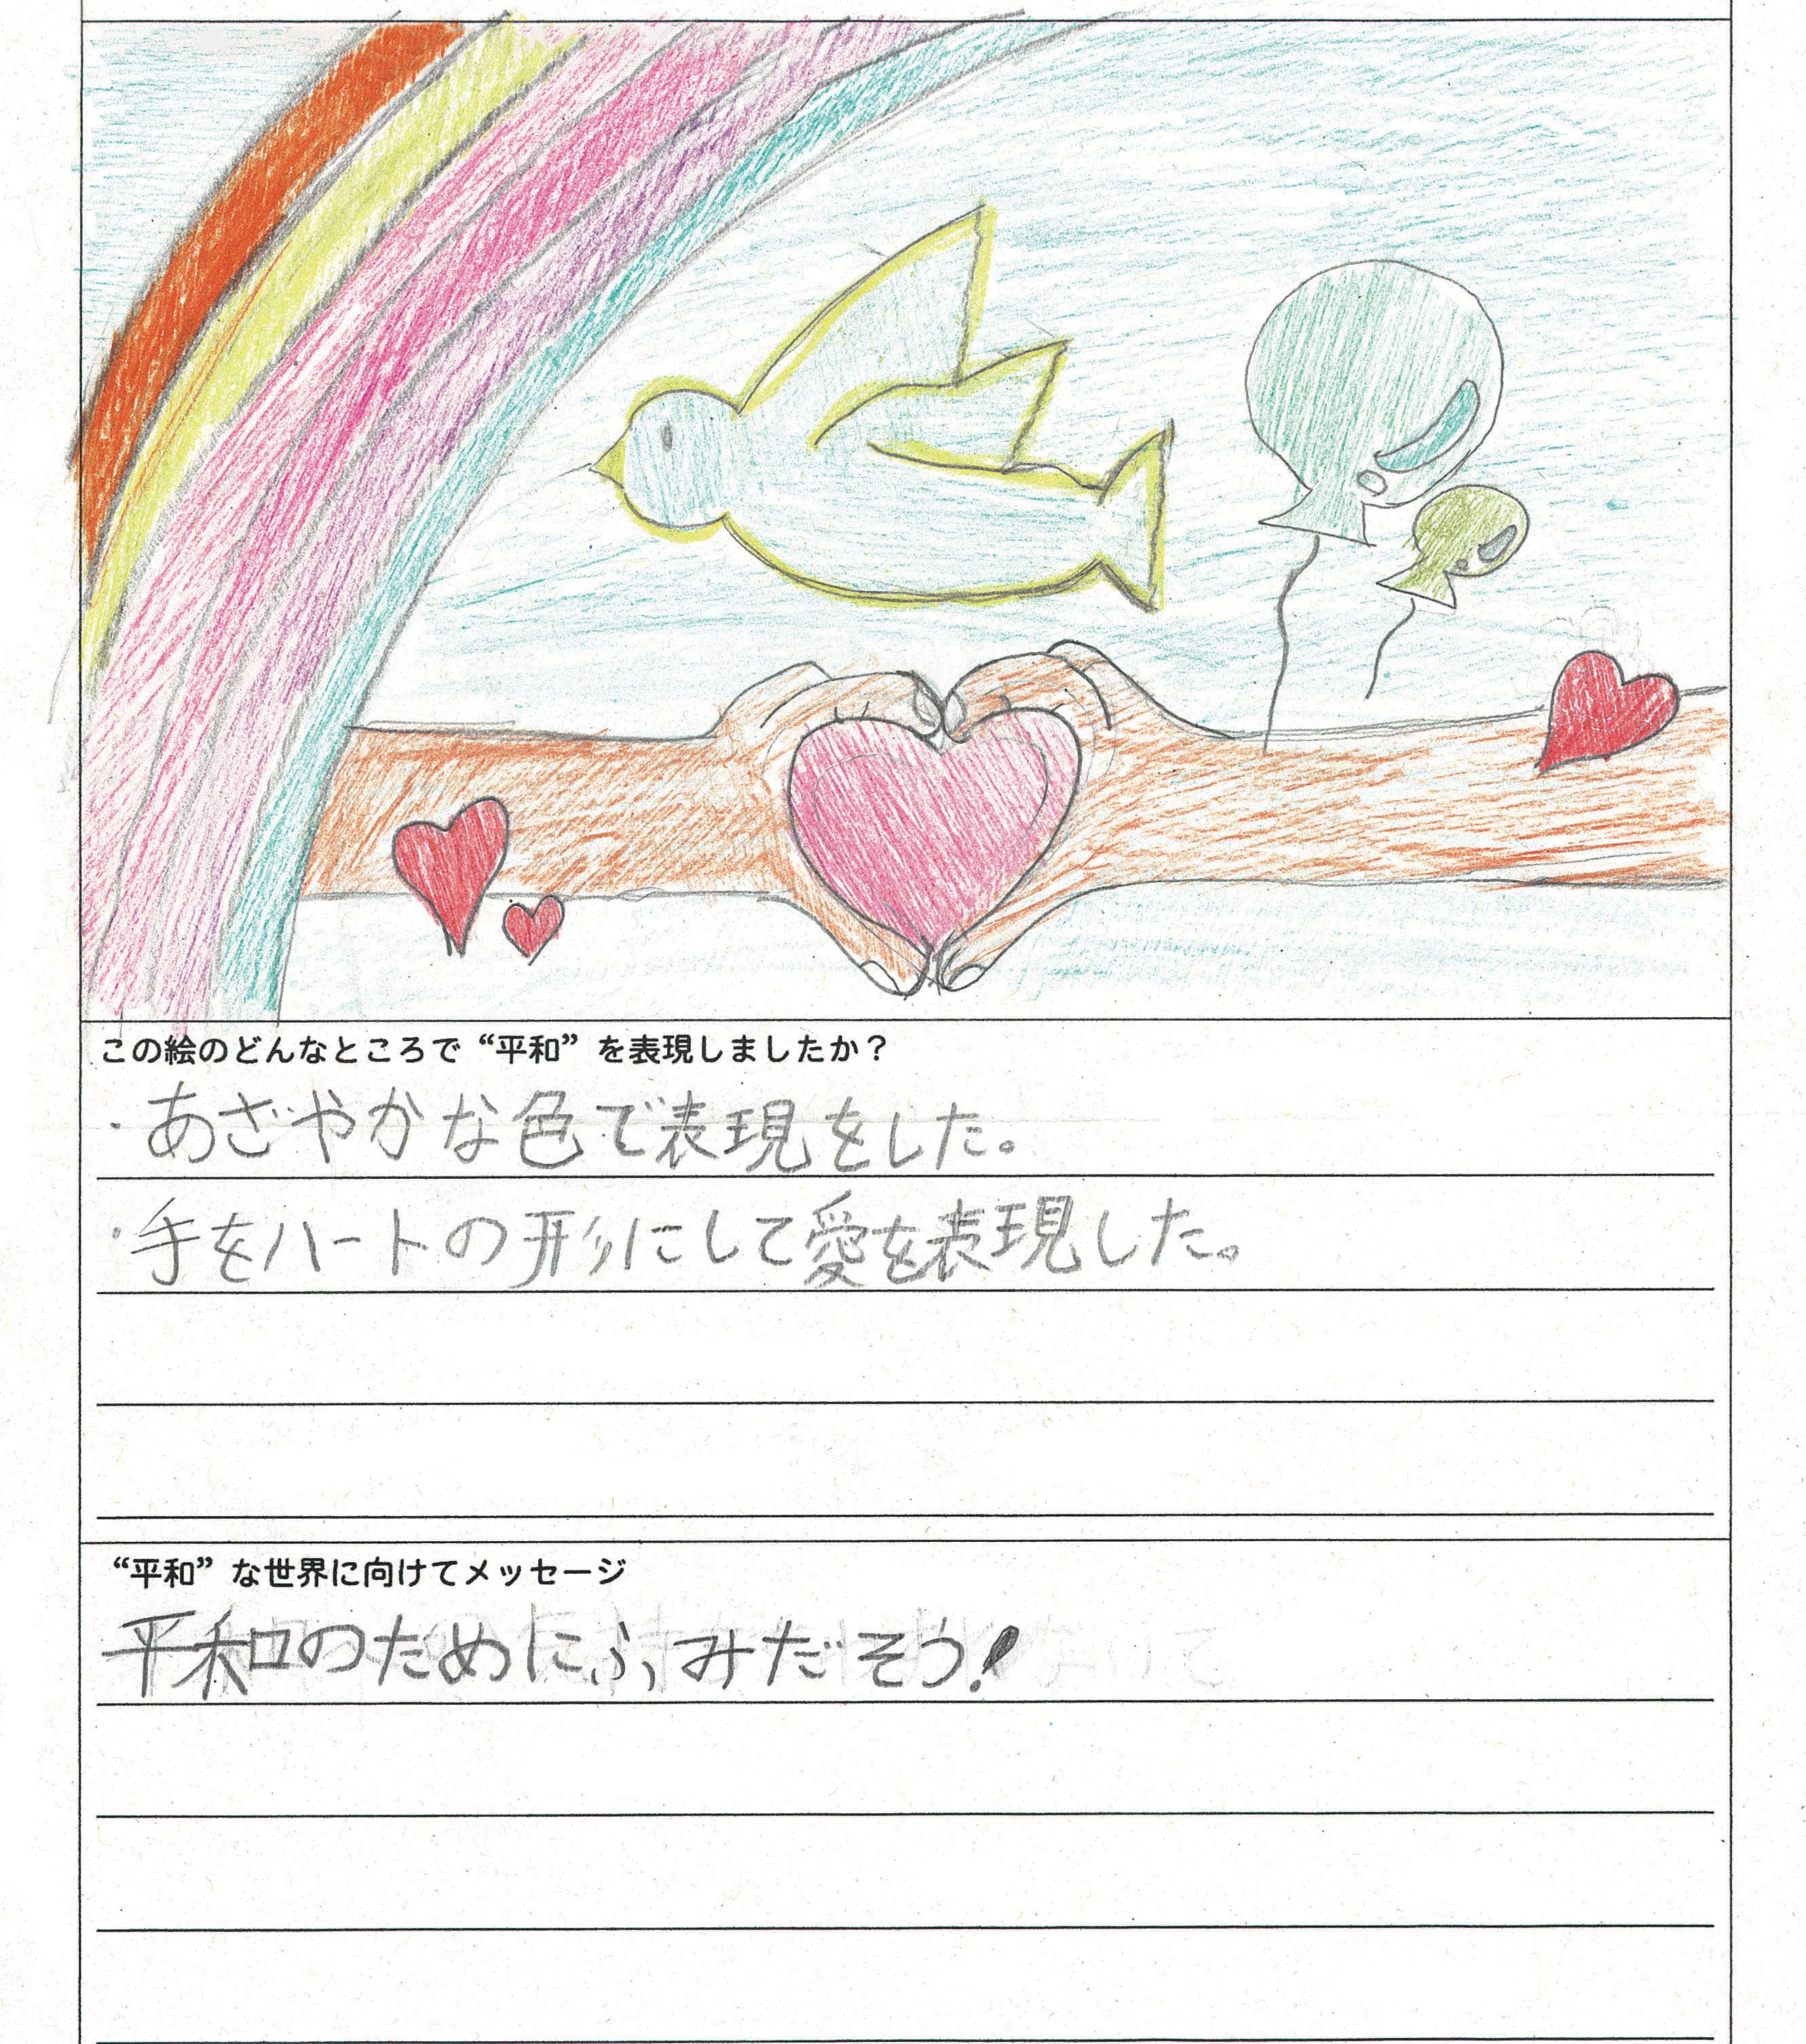 この絵のどんなところで“平和”を表現しましたか？
・あざやかな色で表現をした。
・手をハートの形にして愛を表現した。
“平和”な世界に向けてメッセージ
平和のためにふみだそう!